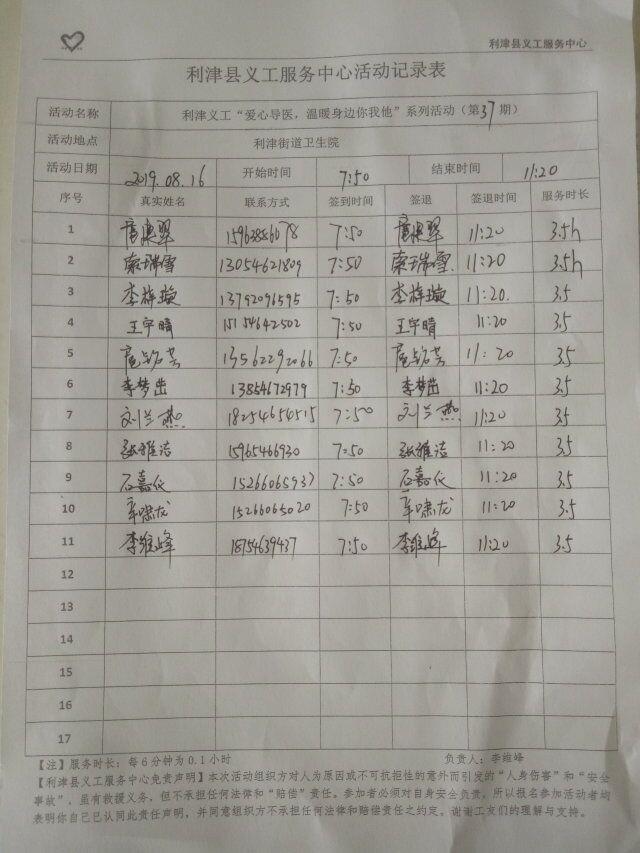 利津县义工服务中心
利津县义工服务中心活动记录表
活动名称 利津义工“爱心导医，温暖身边你我他”系列活动（第37期）
活动地点 利津街道卫生院
活动日期 2019.08.16 开始时间 7:50 结束时间 11:20
序号 真实姓名 联系方式 签到时间 签退 签退时间 服务时长
1 15962886078 7:50 11:20 3.5h
2 索瑞雪 13054621809 7:50 索瑞雪 11:20 3.5h
3 李梓璇 13792096595 7:50 李梓璇 11:20. 3.5
4 王宇晴 15154642502 7:50 王宇晴 11:20 3.5
5 13562292066 7:50 11:20 3.5
6 李梦出 13854672979 7:50 李梦出 11:20 3.5
7 刘兰燕 18254654515 7:50 刘兰燕 11:20 3.5
8 张雅洁 15965466930 7:50 张雅洁 11:20 3.5
9 石嘉仪 15266065937 7:50 石嘉仪 11:20 3.5
10 车啸龙 15266065020 7:50 车啸龙 11:20 3.5
11 李维峰 18754639437 7:50 李维峰 11:20 3.5
12
13
14
15
16
17
【注】服务时长：每6分钟为0.1小时 负责人：李维峰
【利津县义工服务中心免责声明】本次活动组织方对人为原因或不可抗拒性的意外而引发的“人身伤害”和“安全
事故”，虽有救援义务，但不承担任何法律和“赔偿”责任。参加者必须对自身安全负责，所以报名参加活动者均
表明你自己已认同此责任声明，并同意组织方不承担任何法律和赔偿责任之约定。谢谢工友们的理解与支持。